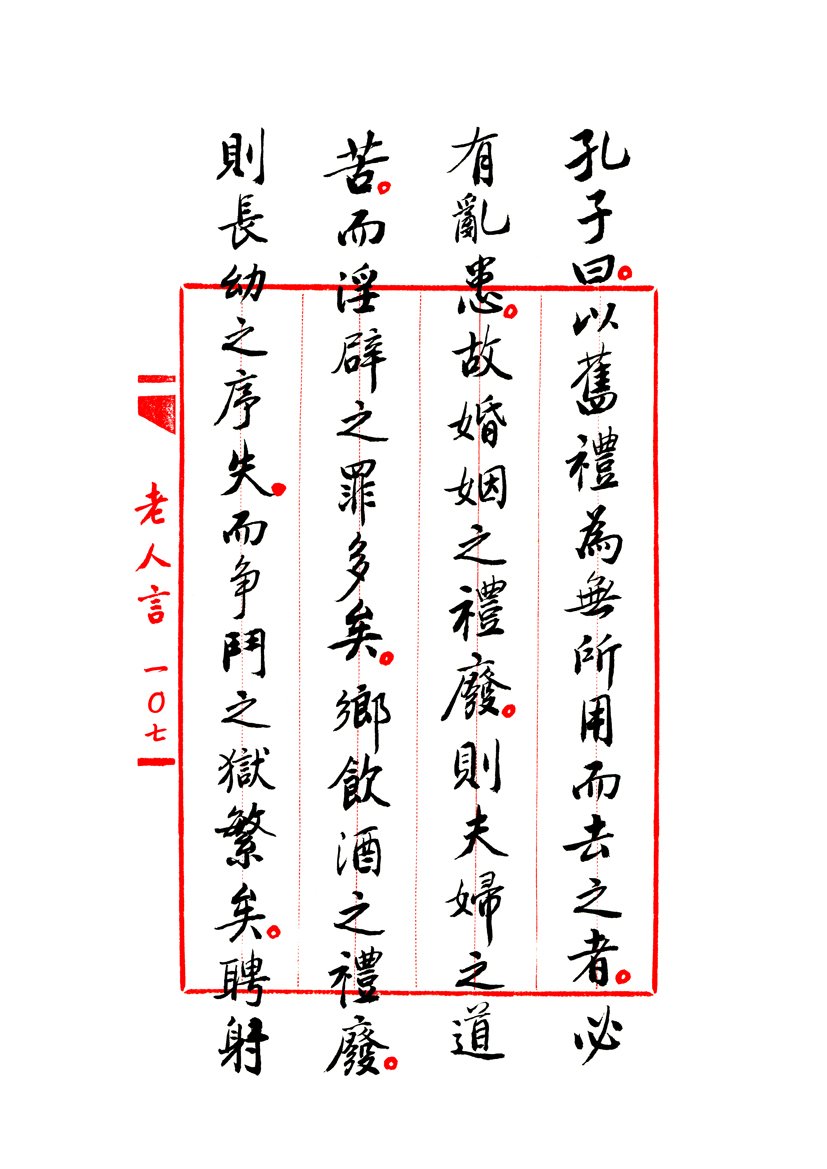 孔子曰。以舊禮為無所用而去之者。必
有亂患。故婚姻之禮廢。則夫婦之道
苦。而淫辟之罪多矣。鄉飲酒之禮廢。
則長幼之序失。而爭鬥之獄繁矣。聘射
老人言 一〇七